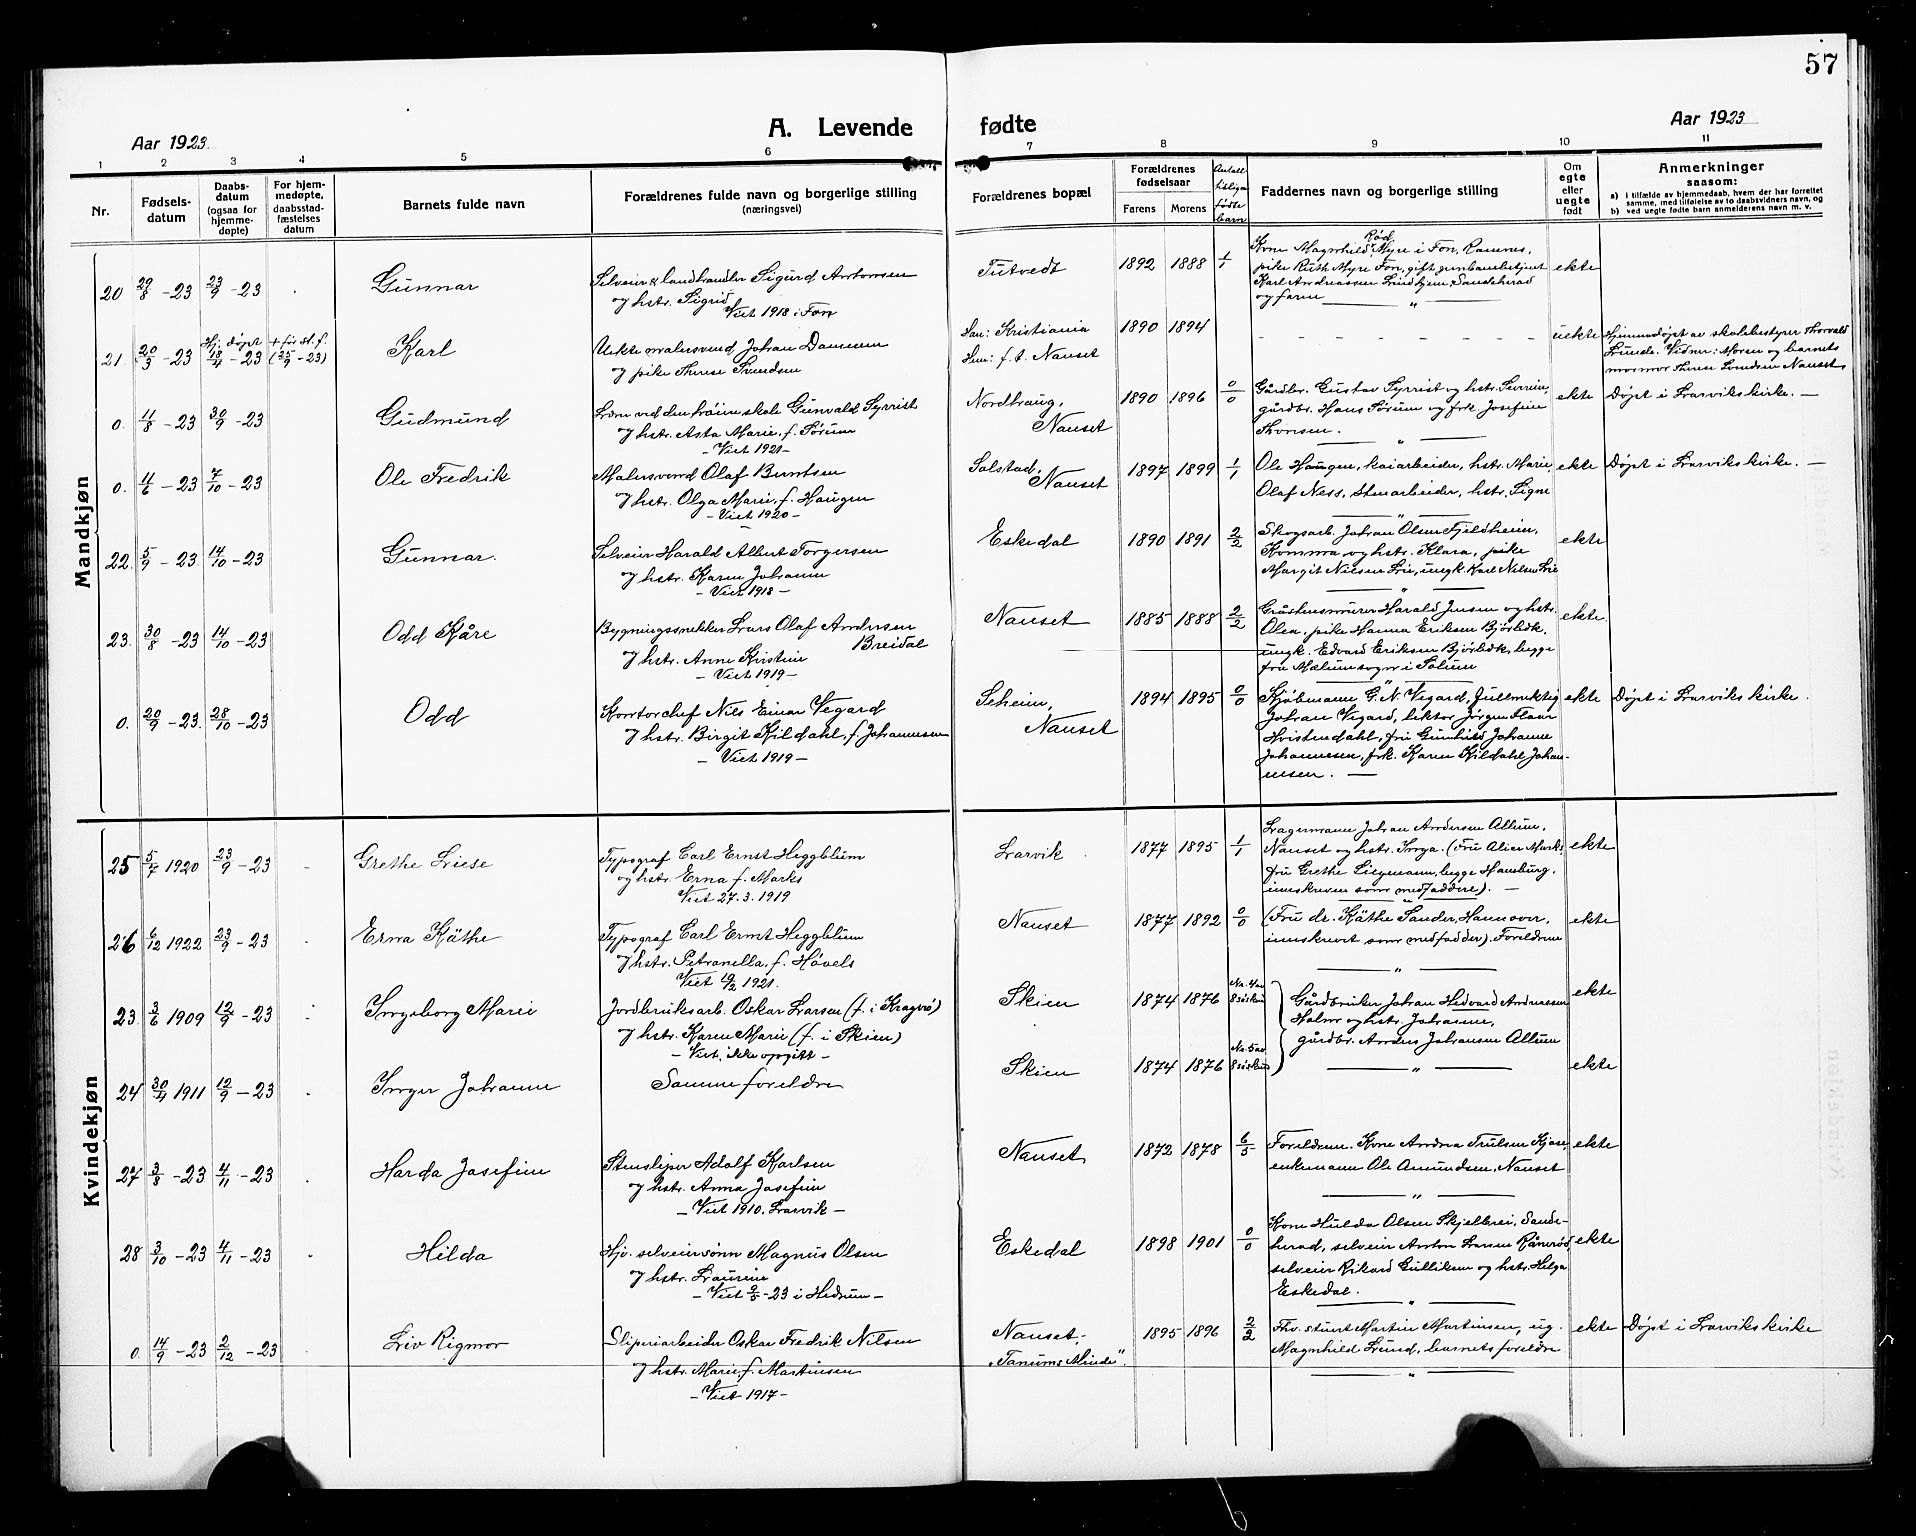 57
A. Levende fødte
Aar 1923
Aar 1923
1 2 3 4 5 6 7 8 9 10 11
Nr.
Fødsels-
datum
Daabs-
datum
(ogsaa for
hjemme-
døpte)
For hjem-
medøpte,
daabsstad-
fæstelses
datum
Barnets fulde navn
Forældrenes fulde navn og borgerlige stilling
(næringsvei)
Forældrenes bopæl
Forældrenes
fødselsaar
Farens Morens
Antall
tidligere
fødte
barn
Faddernes navn og borgerlige stilling
Om
egte
eller
uegte
født
Anmerkninger
saasom:
a) i tilfælde av hjemmedaab, hvem der har forrettet
samme, med tilføielse av to daabsvidners navn, og
b) ved uegte fødte barn anmelderens navn m. v.
Mandkjøn
20 29/8 -23 23/9 -23 Gunnar
Selveier & landhandler Sigurd Antonsen
og hstr. Sigrid
Viet 1918 i Fon
Tutvedt 1892 1888 1/1
Kone Magnhild Rød Myre i Fon, Ramnes,
pike Ruth Myre Fon, gift jernbanebetjent
Karl Andreassen Lindhjem, Sandeherad
og faren
ekte
21. 20/3 -23 Hj. døpt 18/4 -23 + før st. f. (25/9 -23) Karl
Uekte malersvend Johan Dammen
og pike Therese Svendsen
Han: Kristiania
Hun: f. t. Nanset
1890 1894
uekte
Hjemmedøpt av skolebestyrer Thorvald
Lunde. Vidner: Moren og barnets
mormor Therese Svendsen Nanset
0. 11/8 -23 30/9 -23 Gudmund
Lærer ved den høiere skole Gunvald Syrrist
og hstr. Asta Marie, f. Sørum
- Viet 1921 -
Nordhaug,
Nanset
1890 1896 0/0
Gårdbr. Gustav Syrrist og hstr. Severine,
gårdbr. Hans Sørum og frk Josefine
Thorsen.
ekte Døpt i Larviks kirke. —
0. 4/6 -23 7/10 -23 Ole Fredrik
Malersvend Olaf Berntsen
og hstr. Olga Marie, f. Haugen
- Viet 1920 -
Solstad,
Nanset
1897 1899 1/1
Ole Haugen, kaiarbeider, hstr. Marie
Olaf Ness, stenarbeider, hstr. Signe
ekte Døpt i Larviks kirke. —
22. 5/9 -23. 14/10 -23 Gunnar.
Selveier Harald Albert Torgersen
og hstr. Karen Johanne
- Viet 1918 -
Eskedal 1890 1891 2/2
Skogsarb. Johan Olsen Fjeldheim,
Komma og hstr. Klara, pike
Margit Nilsen Lie, ungk. Karl Nilsen Lie
ekte
23. 30/8 -23 14/10 -23 Odd Kåre
Bygningssnekker Lars Olaf Andersen
Breidal
og hstr. Anne Kristine
- Viet 1919 -
Nanset 1885 1888 2/2
Gråstensmurer Harald Jensen og hstr.
Olea, pike Hanna Eriksen Bjørbæk,
ungk. Edvard Eriksen Bjørbæk, begge
fra Mælum sogn i Solum
ekte
0. 20/9 -23. 28/10 -23 Odd
Kontorchef Nils Einar Vegard
og hstr. Birgit Kildahl, f. Johannesen
- Viet 1919 -
Seheim,
Nanset
1894 1895 0/0
Kjøbmann G. N. Vegard, fullmektig
Johan Vegard, lektor Jørgen Flaar
Hvistendahl, fru Gunhild Johanne
Johannesen, frk. Karen Kildahl Johan-
nesen. —
ekte Døpt i Larviks kirke.
Kvindekjøn
25 5/7 1920 23/9 -23 Grethe Liese
Typograf Carl Ernst Heggblum
og hstr. Erna f. Marks
Viet 27. 3. 1919
Larvik 1877 1895 1/1
Lagermann Johan Andersen Allum,
Nanset og hstr. Inga. (Fru Alice Marks
fru Grethe Liepmann, begge Hamburg,
innskreven som medfaddere). —
ekte
26 6/12 1922 23/9 -23 Erna Käthe
Typograf Carl Ernst Heggblum
og hstr. Petronella, f. Hövels
Viet 19/2 1921
Nanset 1877 1892 0/0
(Fru dr. Käthe Sander, Hannover,
innskrevet som medfadder). Foreldrene
ekte
23. 3/6 1909 12/9 -23 Ingeborg Marie
Jordbruksarb. Oskar Larsen (f. i Kragerø)
og hstr. Karen Marie (f. i Skien)
- Viet, ikke opgitt -
Skien 1874 1876 Nr. 4 av 8 søsken
Gårdbruker Johan Hedvard Andreassen
Holm og hstr. Johanne,
gårdbr. Anders Johansen Allum
ekte
24 30/4 1911 12/9 -23 Inger Johanne
Samme foreldre
Skien 1874 1876 Nr. 5 av 8 søsken
ekte
27 3/8 -23 4/11 -23 Harda Josefine
Stensliper Adolf Karlsen
og hstr. Anna Josefine
- Viet 1910, Larvik -
Nanset 1872 1878 6/5
Foreldrene. Kone Andrea Trulsen Kjose
enkemann Ole Amundsen, Nanset
ekte
28 3/10 -23 4/11 -23 Hilda
Hjv. selveiersønn Magnus Olsen
og hstr. Laurine
- Viet 9/5 -23 i Hedrum -
Eskedal 1898 1901 0/0
Kone Hulda Olsen Skjelbrei, Sande-
herad, selveier Anton Larsen Rånerød,
selveier Rikard Gulliksen og hstr. Helga
Eskedal.
ekte
0. 14/9 -23 2/12 -23 Liv Rigmor
Sliperiarbeider Oskar Fredrik Nilsen
og hstr. Marie, f. Martinsen
- Viet 1917 -
Nanset,
"Tanums Minde".
1895 1896 2/2
Fhv. stuert Martin Martinsen, ug.
Magnhild Lund, barnets foreldre
ekte Døpt i Larviks kirke